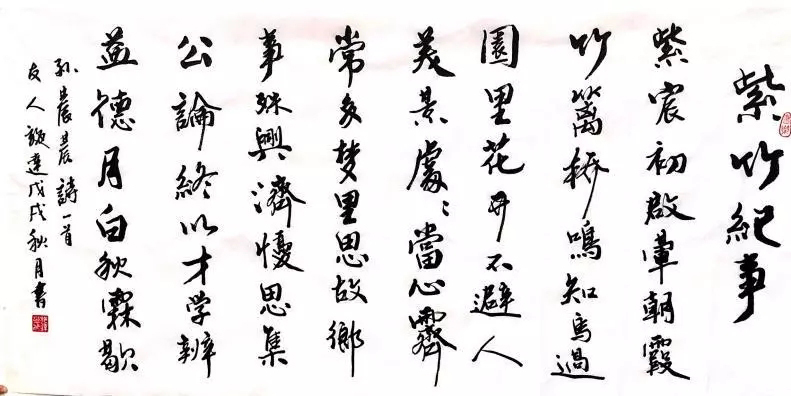 紫竹紀事
紫宸初啟暈朝霞
竹篱桥鳴知鳥過
園里花開不避人
美景處〻當心霽
常多梦里思故鄉
事殊興濟憂思集
公論終以才学辨
益德月白秋霖歇
孙晨晨詩一首
友人毅達戊戌秋月書